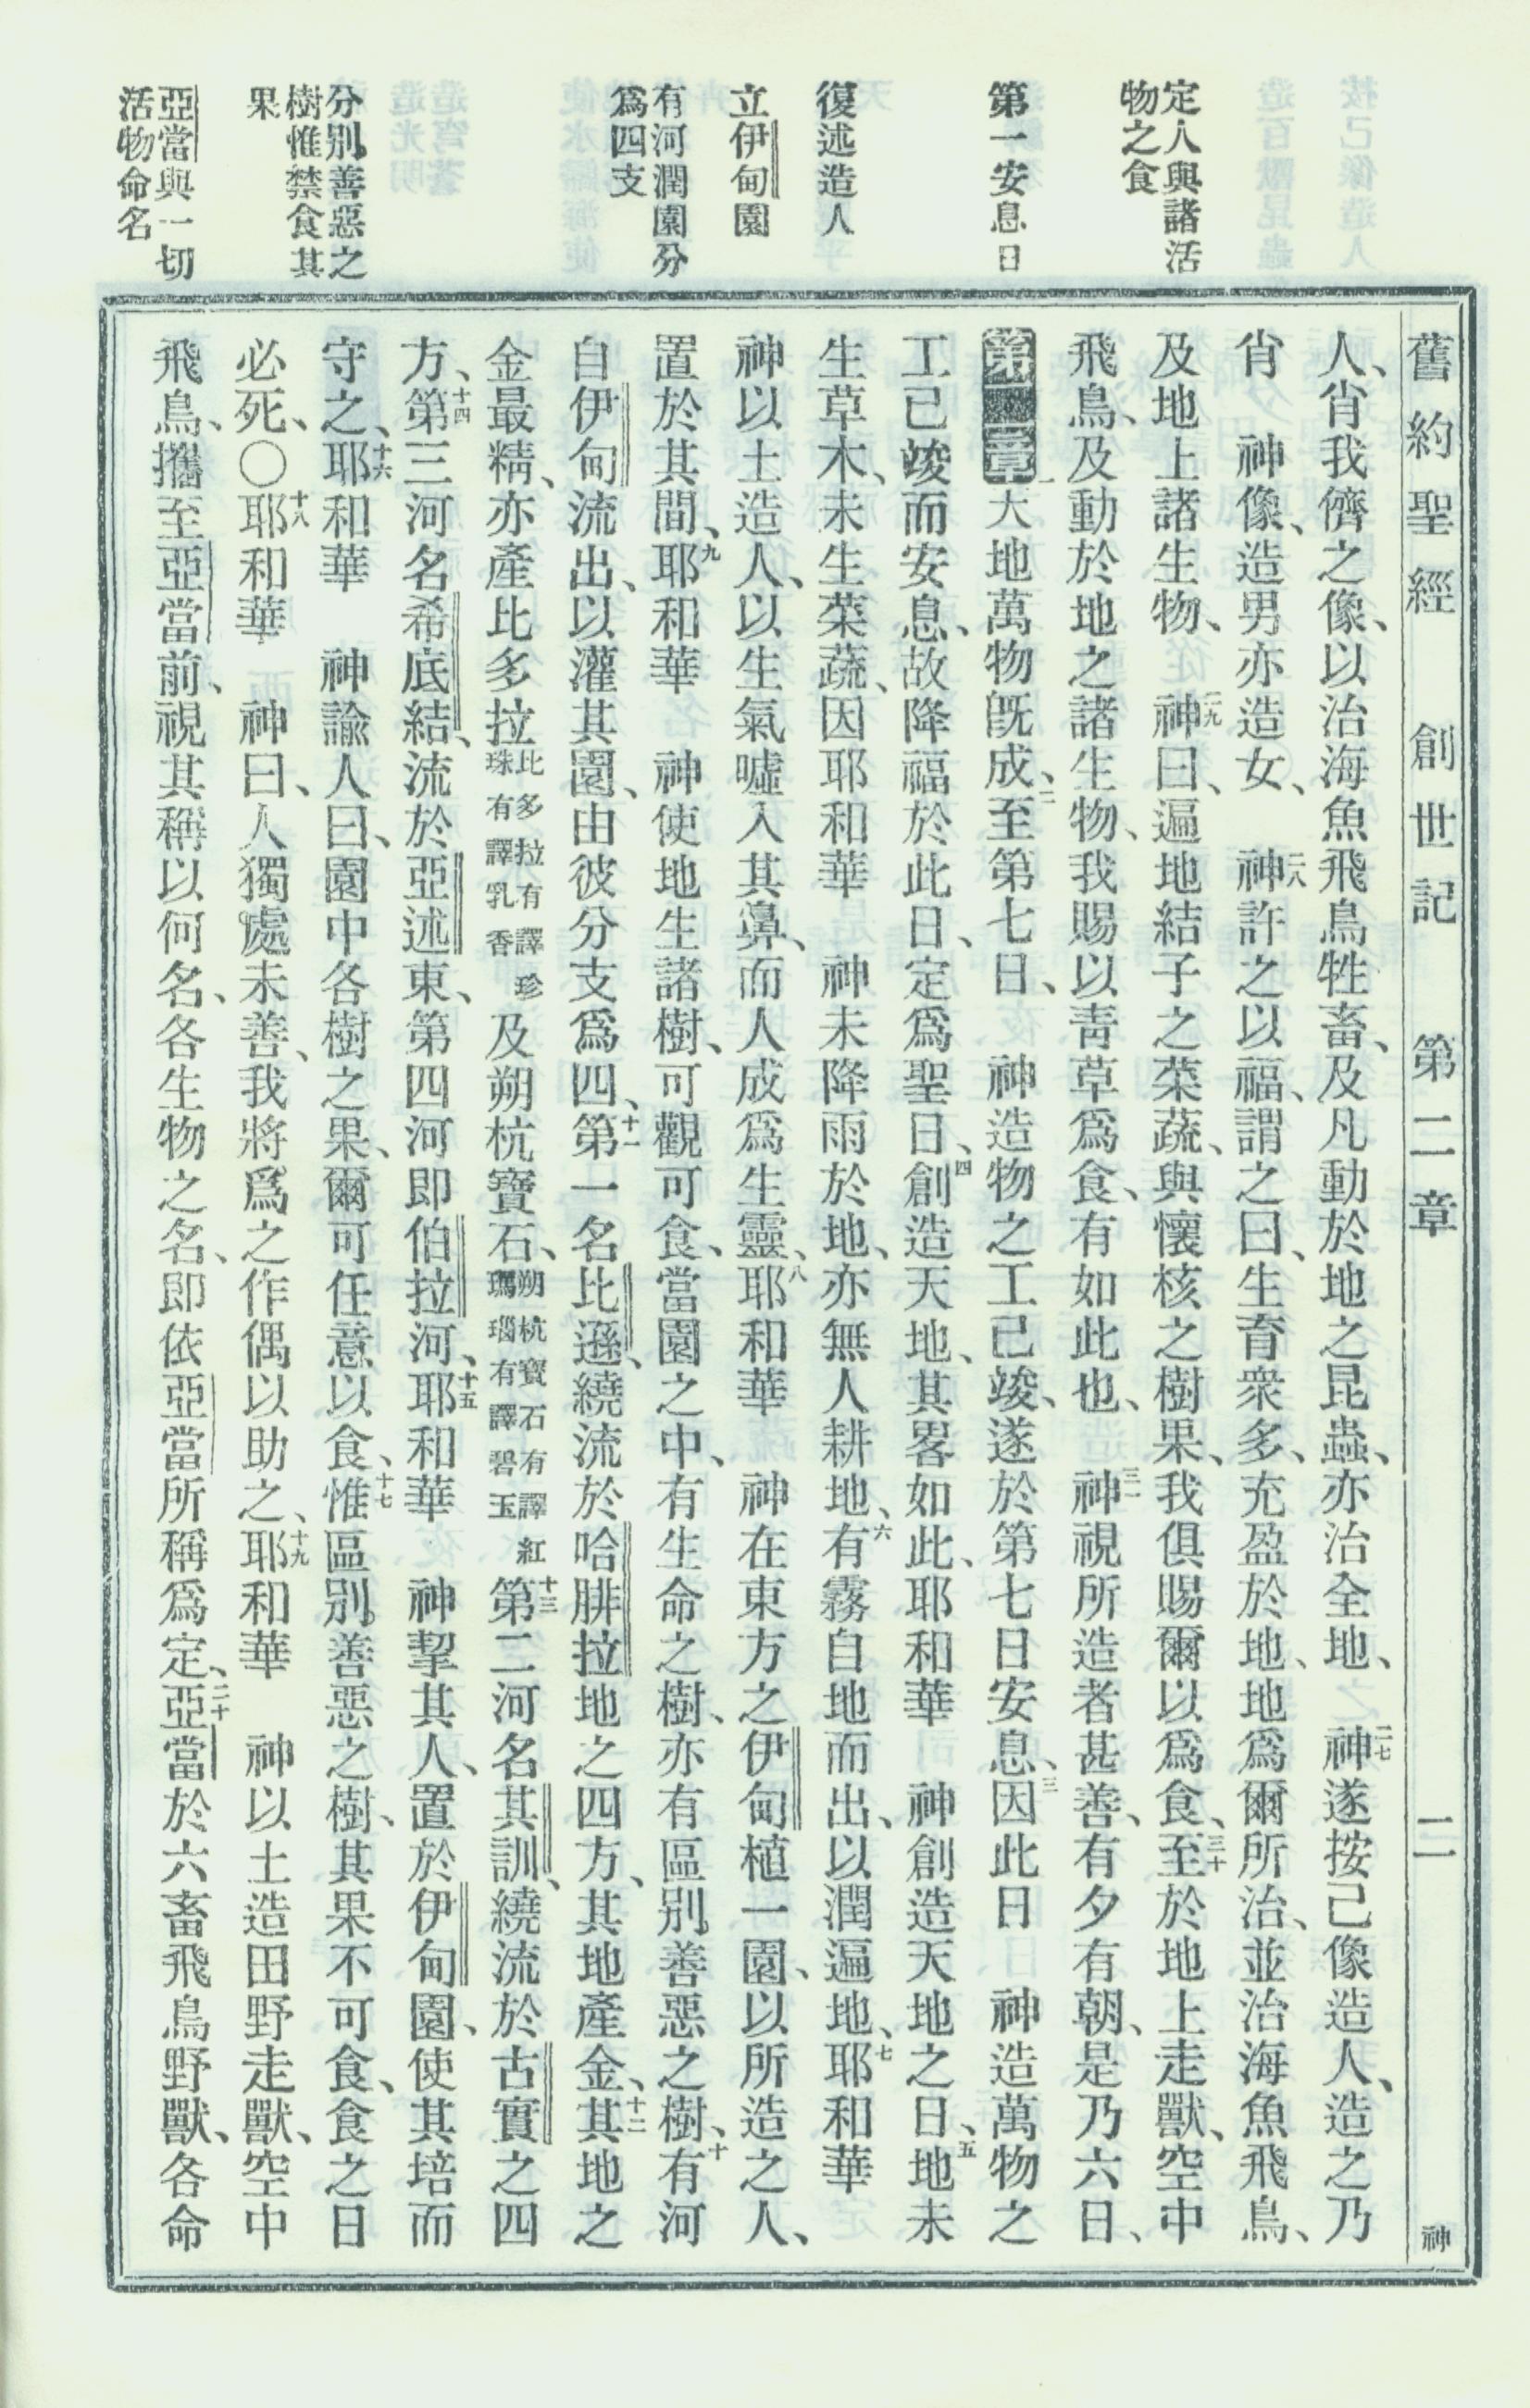 舊約聖經　創世記　第二章　二　神
定人與諸活
物之食
第一安息日
復述造人
立伊甸園
有河潤園分
爲四支
分別善惡之
樹惟禁食其
果
亞當與一切
活物命名
人、肖我儕之像、以治海魚飛鳥牲畜、及凡動於地之昆蟲、亦治全地、二七神遂按己像造人、造之乃
肖　神像、造男亦造女、二八神許之以福、謂之曰、生育衆多、充盈於地、地爲爾所治、並治海魚飛鳥、
及地上諸生物、二九神曰、遍地結子之菜蔬、與懷核之樹果、我俱賜爾以爲食、三十至於地上走獸、空中
飛鳥、及動於地之諸生物、我賜以靑草爲食、有如此也、三一神視所造者甚善、有夕有朝、是乃六日、
第二章一天地萬物旣成、二至第七日、神造物之工已竣、遂於第七日安息、三因此日　神造萬物之
工已竣而安息、故降福於此日、定爲聖日、四創造天地、其畧如此、耶和華　神創造天地之日、五地未
生草木、未生菜蔬、因耶和華　神未降雨於地、亦無人耕地、六有霧自地而出、以潤遍地、七耶和華
神以土造人、以生氣噓入其鼻、而人成爲生靈、八耶和華　神在東方之伊甸植一園、以所造之人、
置於其間、九耶和華　神使地生諸樹、可觀可食、當園之中、有生命之樹、亦有區別善惡之樹、十有河
自伊甸流出、以灌其園、由彼分支爲四、十一第一名比遜、繞流於哈腓拉地之四方、其地產金、十二其地之
金最精、亦產比多拉比多拉有譯珍珠有譯乳香及朔杭寶石、朔杭寶石有譯紅瑪瑙有譯碧玉十三第二河名其訓、繞流於古實之四
方、十四第三河名希底結、流於亞述東、第四河即伯拉河、十五耶和華　神挈其人、置於伊甸園、使其培而
守之、十六耶和華　神諭人曰、園中各樹之果、爾可任意以食、十七惟區別善惡之樹、其果不可食、食之日
必死、○十八耶和華　神曰、人獨處未善、我將爲之作偶以助之、十九耶和華　神以土造田野走獸、空中
飛鳥、攜至亞當前、視其稱以何名、各生物之名、即依亞當所稱爲定、二十亞當於六畜飛鳥野獸、各命